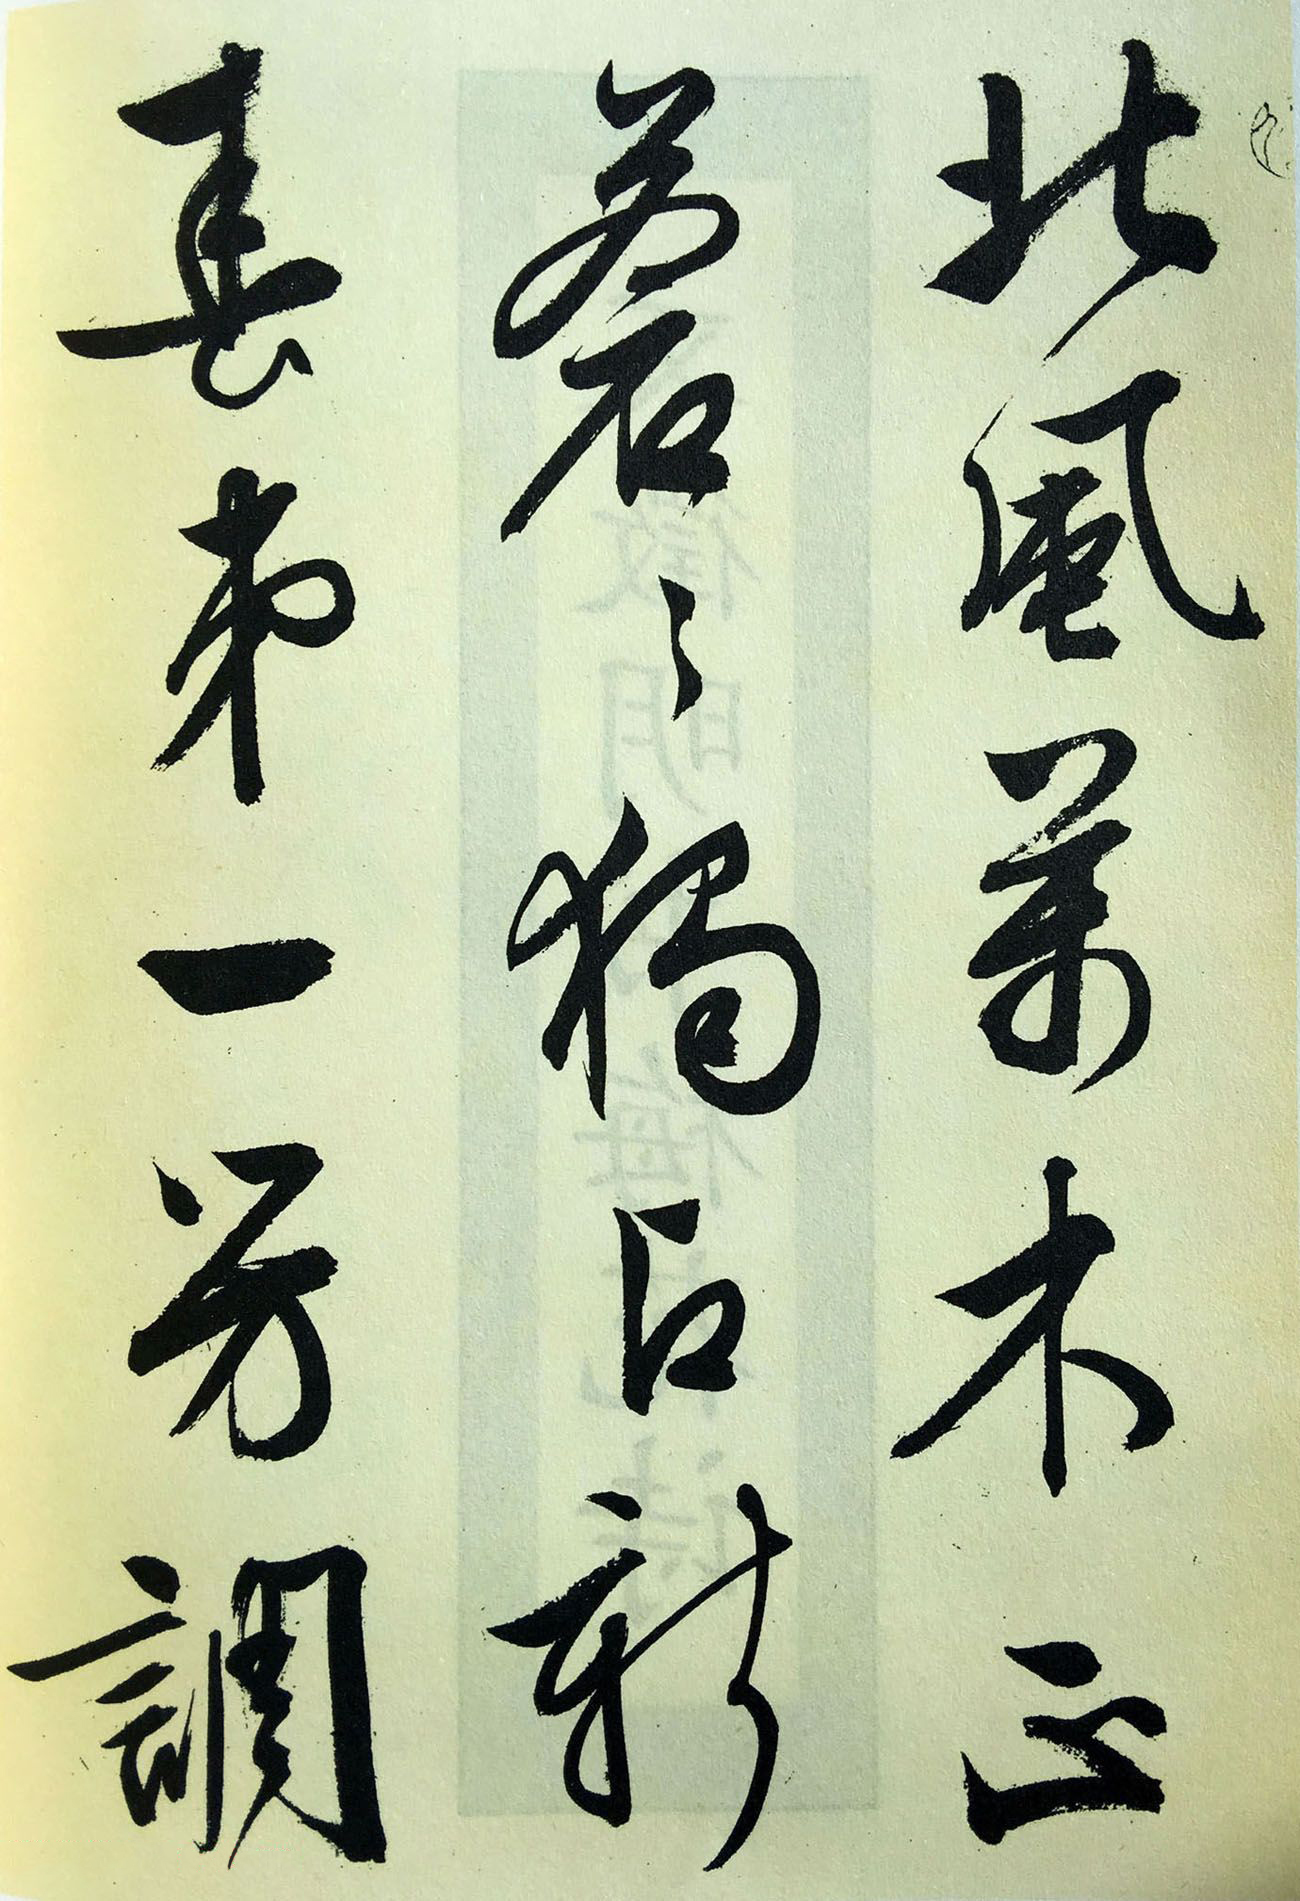 北風萬木正
蒼〻獨占新
春第一芳調